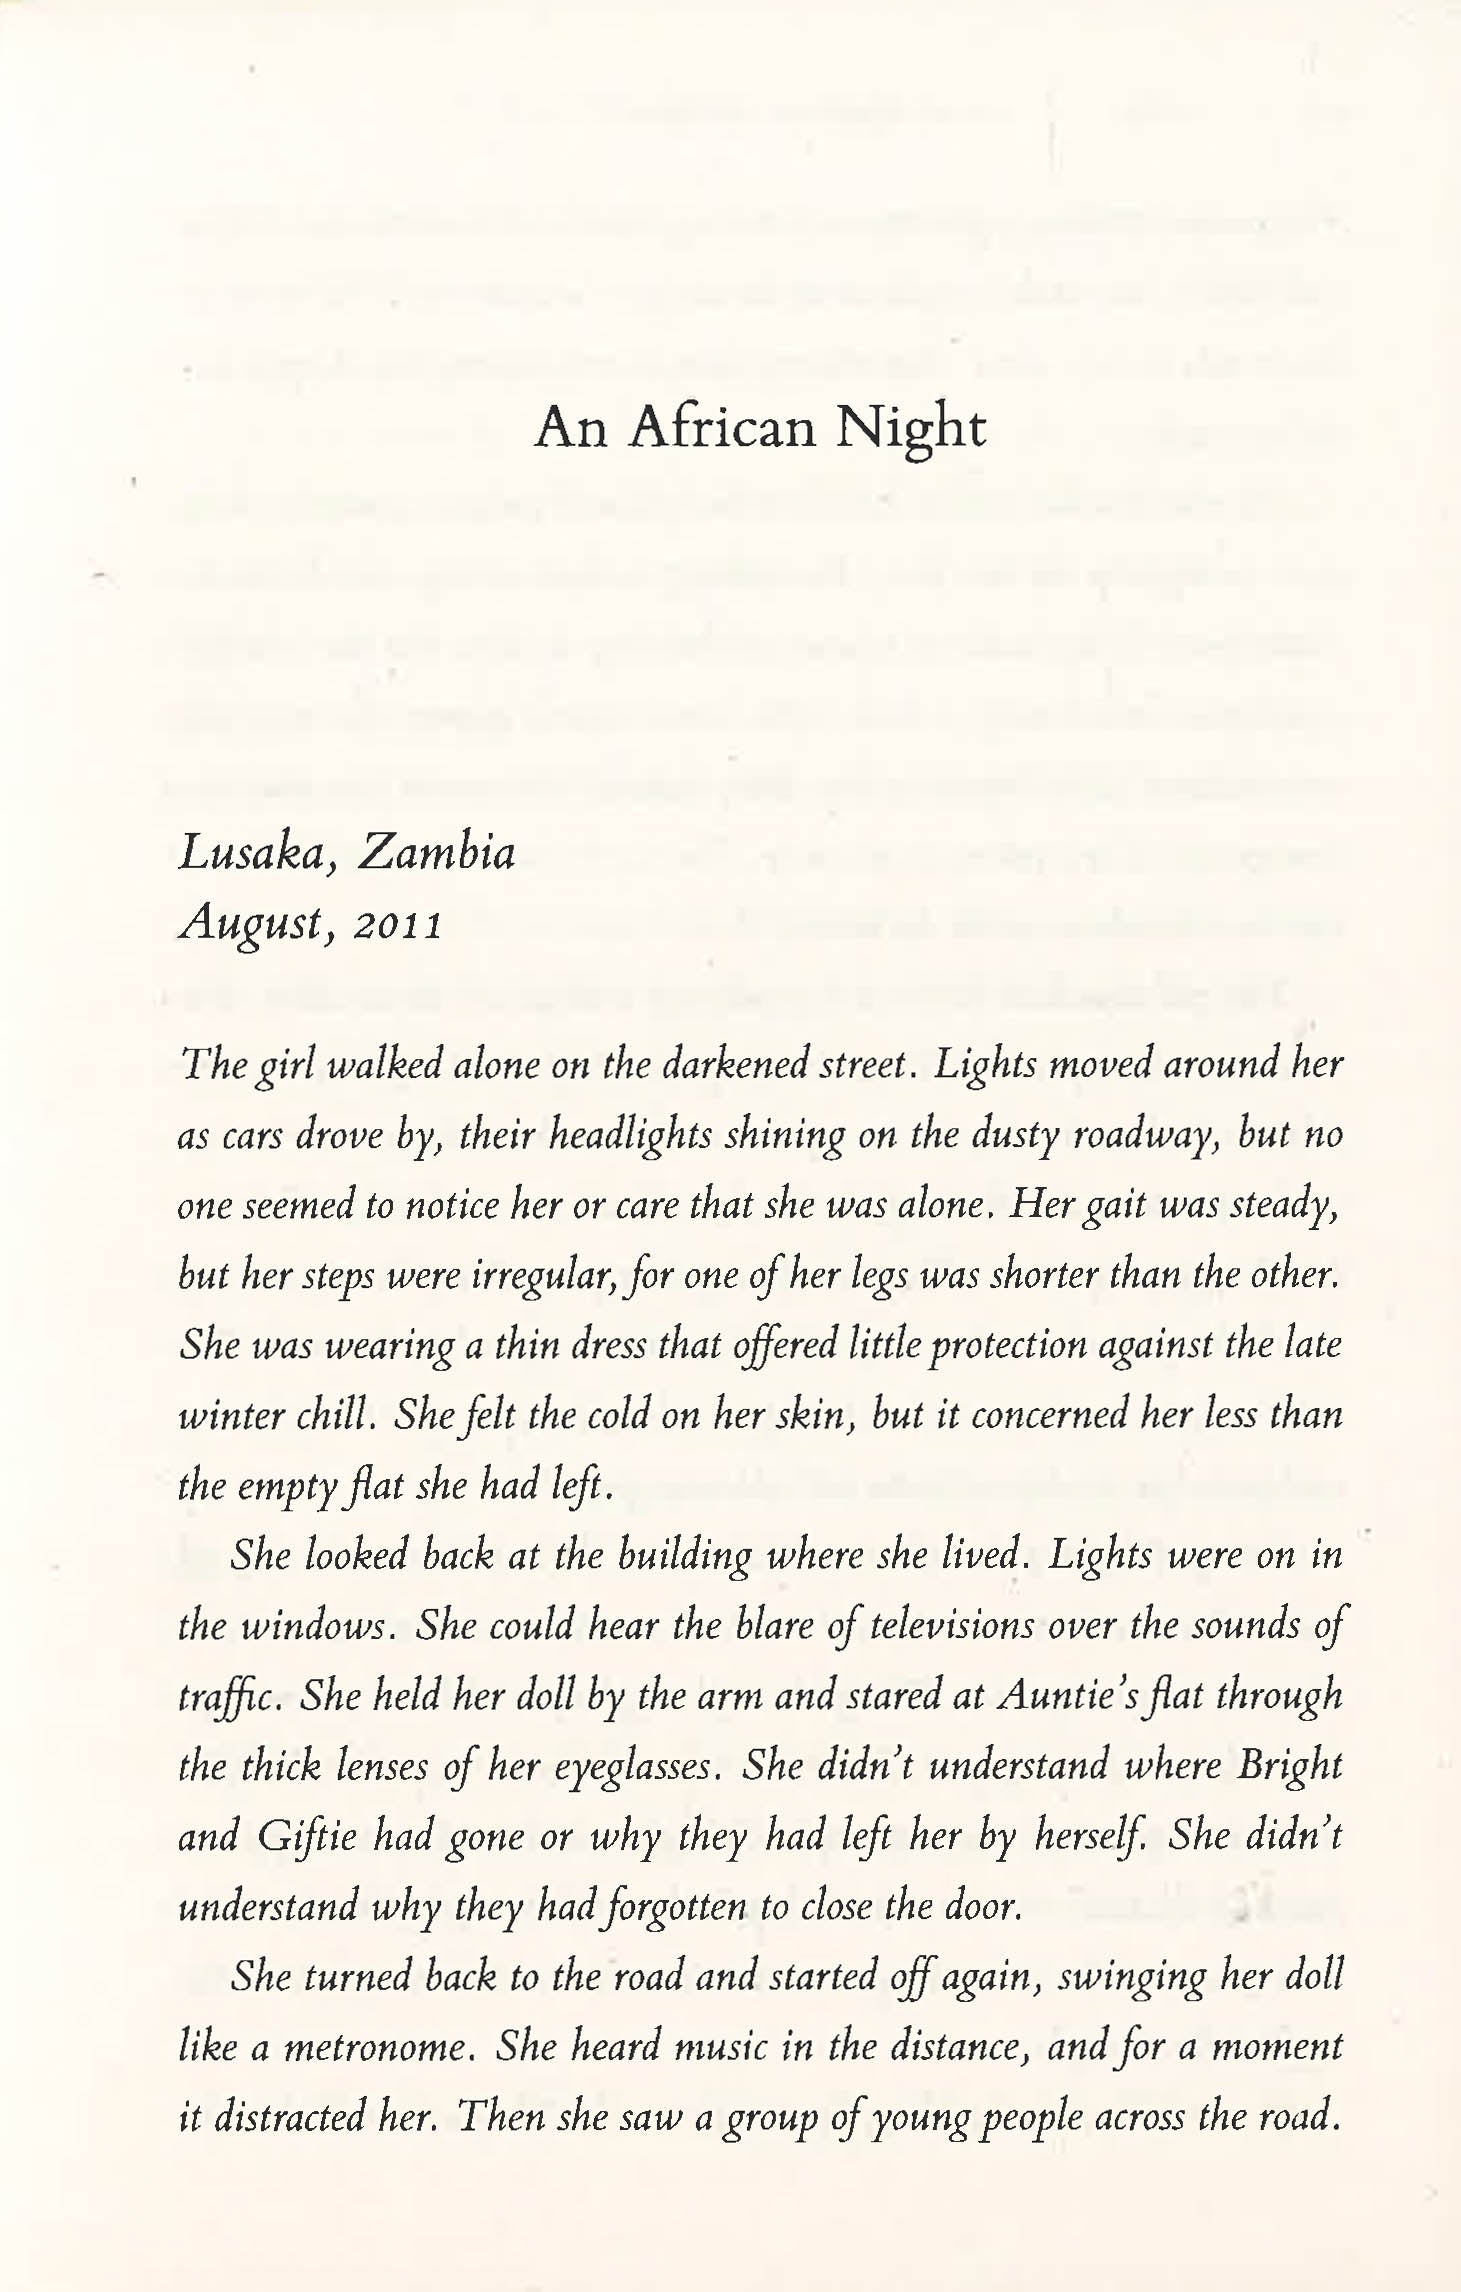 An African Night
Lusaka, Zambia
August, 2011
The girl walked alone on the darkened street. Lights moved around her
as cars drove by, their headlights shining on the dusty roadway, but no
one seemed to notice her or care that she was alone. Her gait was steady,
but her steps were irregular, for one of her legs was shorter than the other.
She was wearing a thin dress that offered little protection against the late
winter chill. She felt the cold on her skin, but it concerned her less than
the empty flat she had left.
She looked back at the building where she lived. Lights were on in
the windows. She could hear the blare of televisions over the sounds of
traffic. She held her doll by the arm and stared at Auntie's flat through
the thick lenses of her eyeglasses. She didn't understand where Bright
and Giftie had gone or why they had left her by herself. She didn't
understand why they had forgotten to close the door.
She turned back to the road and started off again, swinging her doll
like a metronome. She heard music in the distance, and for a moment
it distracted her. Then she saw a group of young people across the road.